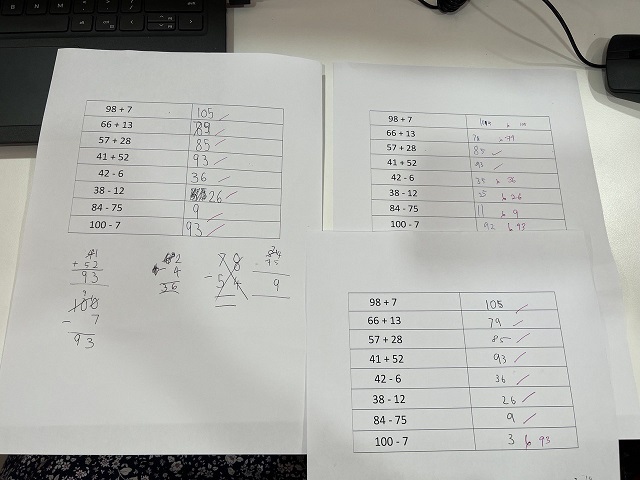 98 + 7 105
66 + 13 89
57 + 28 85
41 + 52 93
42 - 6 36
38 - 12 26
84 - 75 9
100 - 7 93
41
+ 52
93
100
- 7
93
4
36
78
- 54
84
75
9
98 + 7
66 + 13 79
57 + 28 85
41 + 52 93
42 - 6 36
38 - 12 26
84 - 75 11 9
100 - 7 92 93
98 + 7 105
66 + 13 79
57 + 28 85
41 + 52 93
42 - 6 36
38 - 12 26
84 - 75 9
100 - 7 3 93